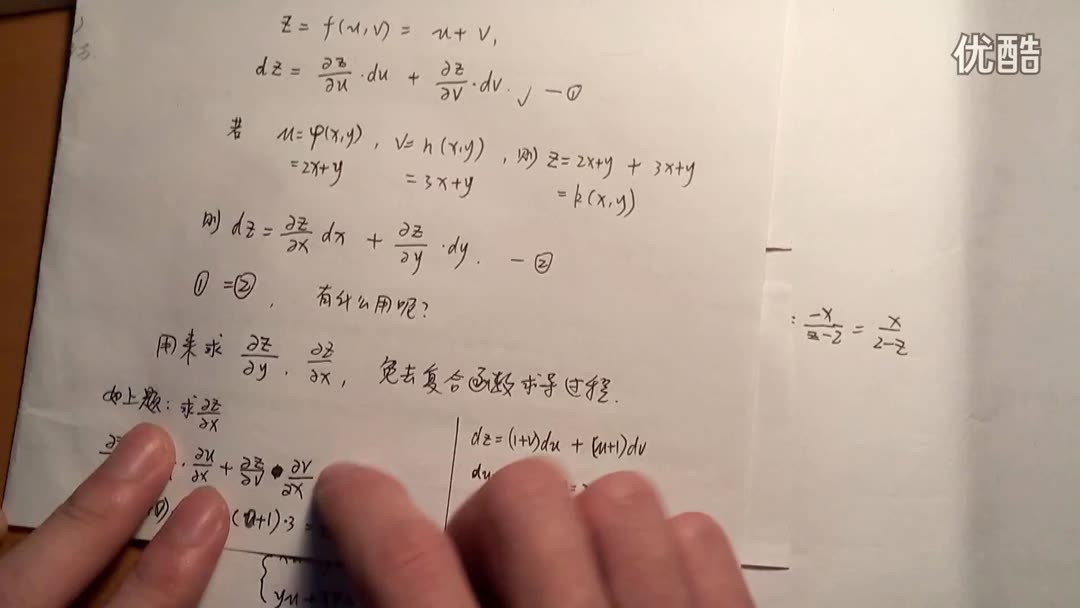 优酷
z = f(u,v) = u + v,
dz = ∂z/∂u · du + ∂z/∂v · dv. ✓ —①
若 u = φ(x,y), v = h(x,y), 则 z = 2x+y + 3x+y
= 2x+y = 3x+y = k(x,y)
则 dz = ∂z/∂x dx + ∂z/∂y · dy. —②
① = ②, 有什么用呢?
: -x/z-2 = x/2-z
用来求 ∂z/∂y . ∂z/∂x, 免去复合函数求导过程.
如上题: 求 ∂z/∂x
· ∂u/∂x + ∂z/∂v · ∂v/∂x
(u+1)·3 =
dz = (1+v)du + (u+1)dv
du
yu +